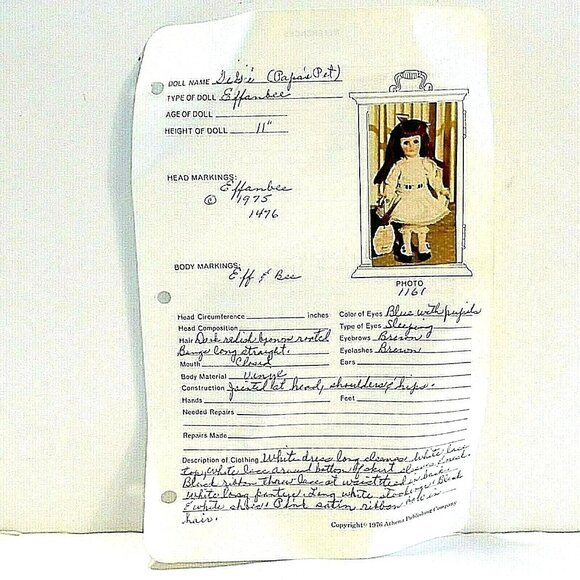 DOLL NAME GiGi (Papa's Pet)
TYPE OF DOLL Effanbee
AGE OF DOLL
HEIGHT OF DOLL 11"
HEAD MARKINGS:
Effanbee
© 1975
1476
BODY MARKINGS:
Eff & Bee
PHOTO
1161
Head Circumference inches
Head Composition
Hair Dark redish brown rooted
Bangs long straight.
Mouth Closed
Body Material Vinyl
Construction Jointed at head, shoulders & hips.
Hands Feet
Color of Eyes Blue with pupils
Type of Eyes Sleeping
Eyebrows Brown
Eyelashes Brown
Ears
Needed Repairs
Repairs Made
Description of Clothing White dress long sleeves White lace
top, White lace around bottom of skirt sleeves
Black ribbon threw lace at waist tied in back.
White long pantys. Long white stockings. Black
& white shoes. Pink satin ribbon in
hair.
Copyright © 1976 Athena Publishing Company